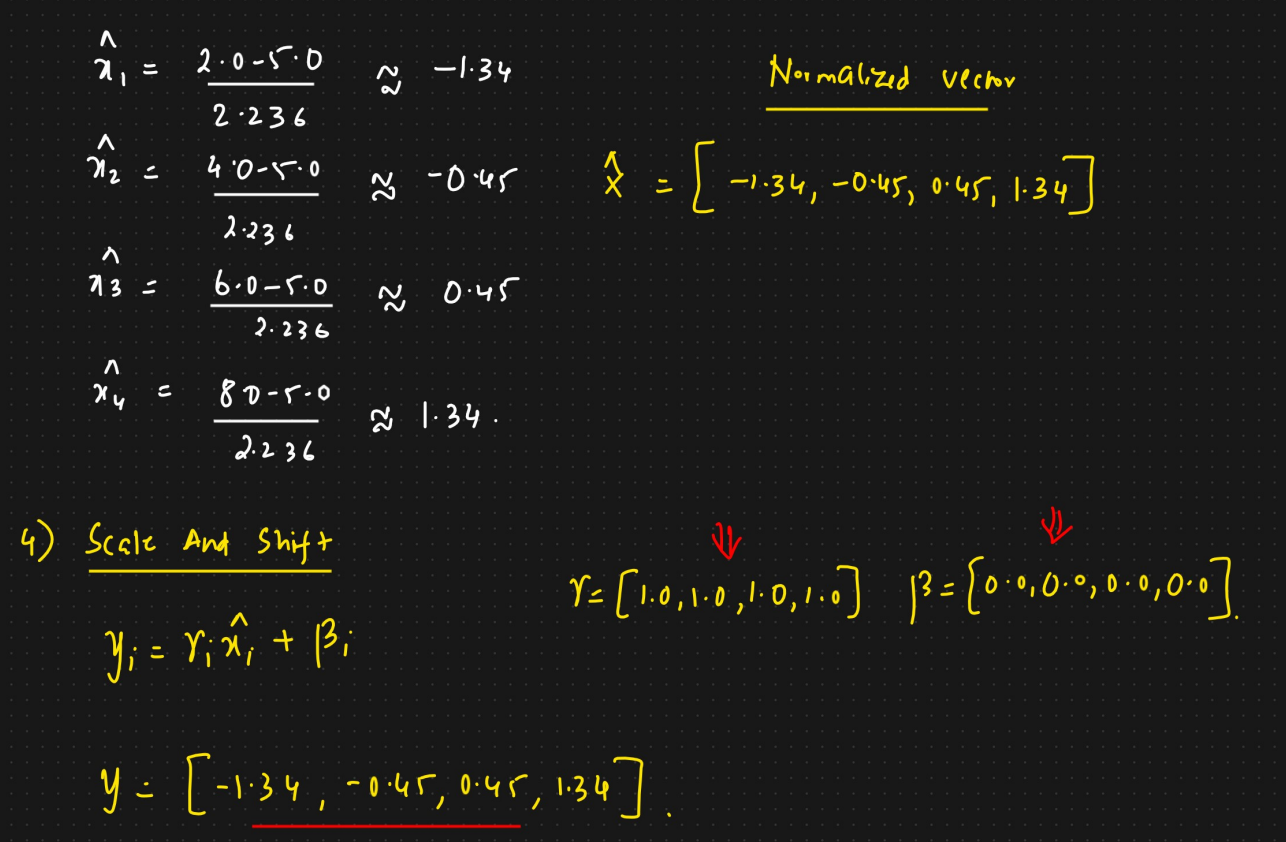 x̂₁ = (2.0-5.0)/2.236 ≈ -1.34
x̂₂ = (4.0-5.0)/2.236 ≈ -0.45
x̂3 = (6.0-5.0)/2.236 ≈ 0.45
x̂₄ = (80-5.0)/2.236 ≈ 1.34.
Normalized vector
x̂ = [-1.34, -0.45, 0.45, 1.34]
4) Scale And Shift
γ = [1.0, 1.0, 1.0, 1.0] β = [0.0, 0.0, 0.0, 0.0].
yᵢ = γᵢx̂ᵢ + βᵢ
y = [-1.34, -0.45, 0.45, 1.34].